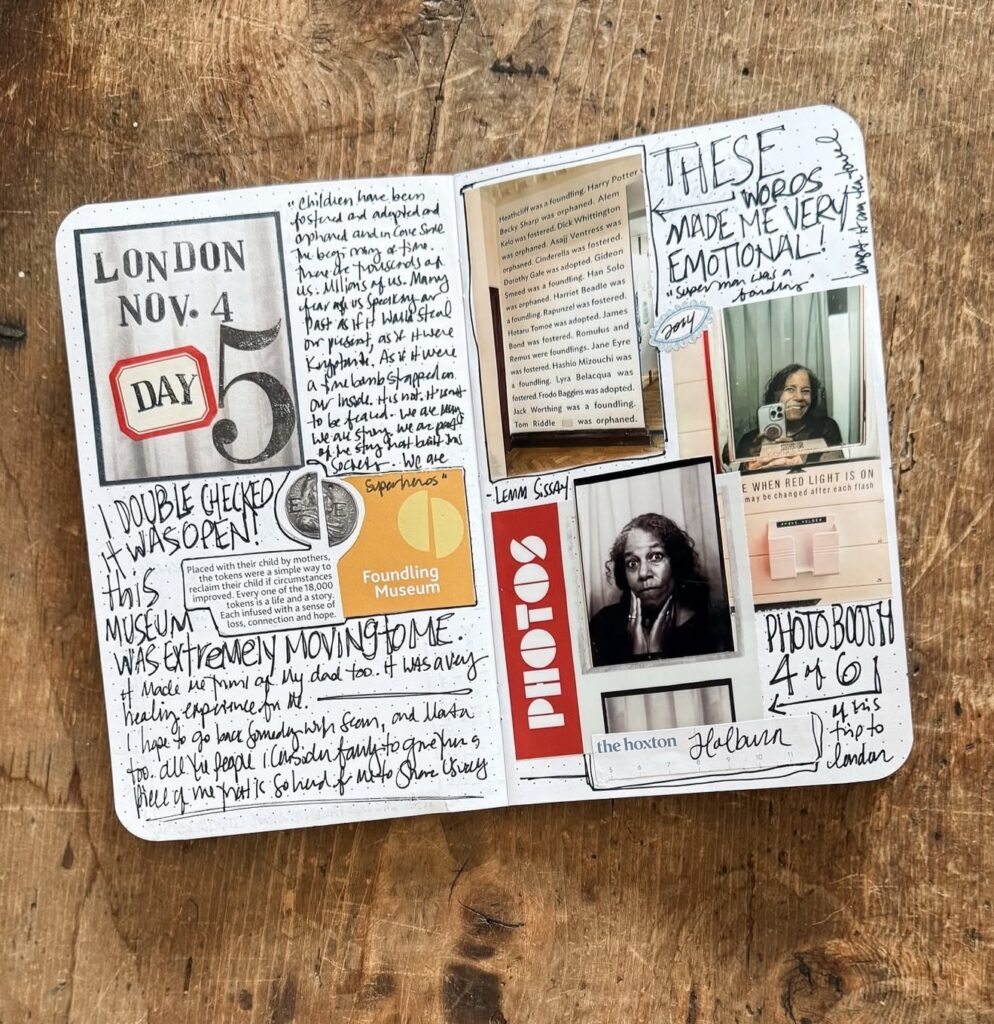 LONDON
NOV. 4
DAY
5
"Children have been
fostered and adopted and
orphaned and in care since
the beginning of time.
There are thousands of
us. Millions of us. Many
of us speak of our
past as if it would steal
our present, as if it were
Kryptonite. As if it were
a time bomb strapped on
our inside. It is not. It isn't
to be feared. We are
We are strong. We are part
of the story that built this
society. We are
Superheros"
I DOUBLE CHECKED
it WAS OPEN!
this
MUSEUM
WAS EXTREMELY MOVING to ME.
it made me think of my dad too. it was a very
healing experience for me.
I hope to go back someday with Sean, and
too. all the people I consider family to give them a
piece of me that is so hard for me to share usually
Placed with their child by mothers,
the tokens were a simple way to
reclaim their child if circumstances
improved. Every one of the 18,000
tokens is a life and a story.
Each infused with a sense of
loss, connection and hope.
Foundling
Museum
Heathcliff was a foundling. Harry Potter
Becky Sharp was orphaned. Alem
Kelo was fostered. Dick Whittington
was orphaned. Asajj Ventress was
orphaned. Cinderella was fostered.
Dorothy Gale was adopted. Gideon
Smeed was a foundling. Han Solo
was orphaned. Harriet Beadle was
a foundling. Rapunzel was fostered.
Hotaru Tomoe was adopted. James
Bond was fostered. Romulus and
Remus were foundlings. Jane Eyre
was fostered. Hashio Mizouchi was
a foundling. Lyra Belacqua was
fostered. Frodo Baggins was adopted.
Jack Worthing was a foundling.
Tom Riddle was orphaned.
- LEMN SISSAY
THESE
WORDS
MADE ME VERY
EMOTIONAL!
"Superman was a
foundling
E WHEN RED LIGHT IS ON
may be changed after each flash
PHOTOS
PHOTOBOOTH
4 of 6
of this
trip to
London
the hoxton
Holburn
5 6 7 8 9 10 11